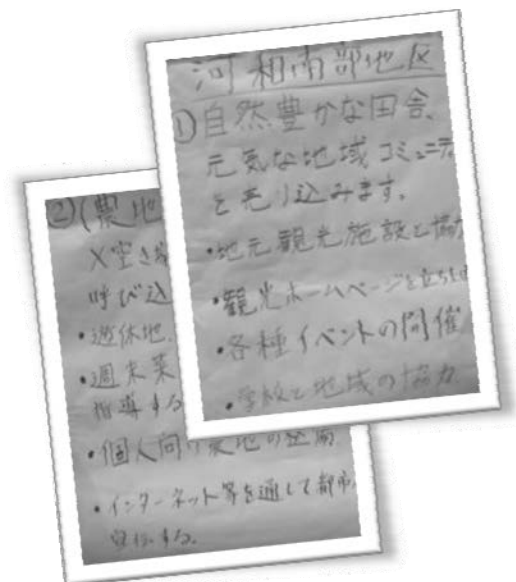 河和南部地区
①自然豊かな田舎、
元気な地域コミュニテ
を売り込みます。
・地元観光施設と協力
・観光ホームページを立ち上
・各種イベントの開催
・学校と地域の協力
②(農地
×空き家
呼び込
・遊休地
・週末菜
指導する
・個人向け農地の整備
・インターネット等を通して都市
宣伝する。